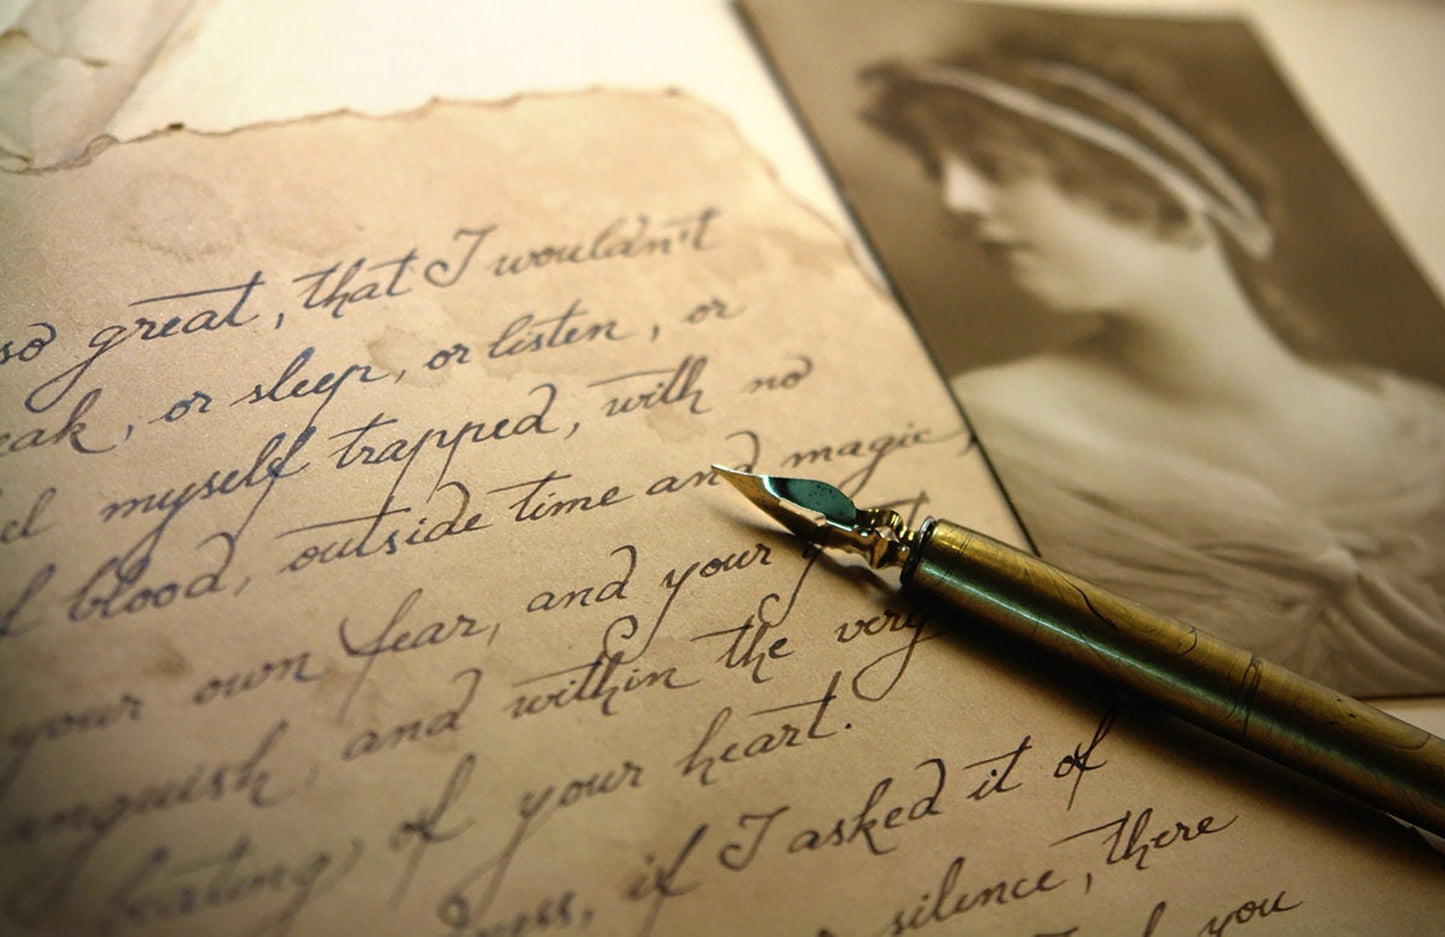 so great, that I wouldn't
eak, or sleep, or listen, or
el myself trapped, with no
f blood, outside time and magic,
your own fear, and your
anguish, and within the very
beating of your heart.
ness, if I asked it of
silence, there
you